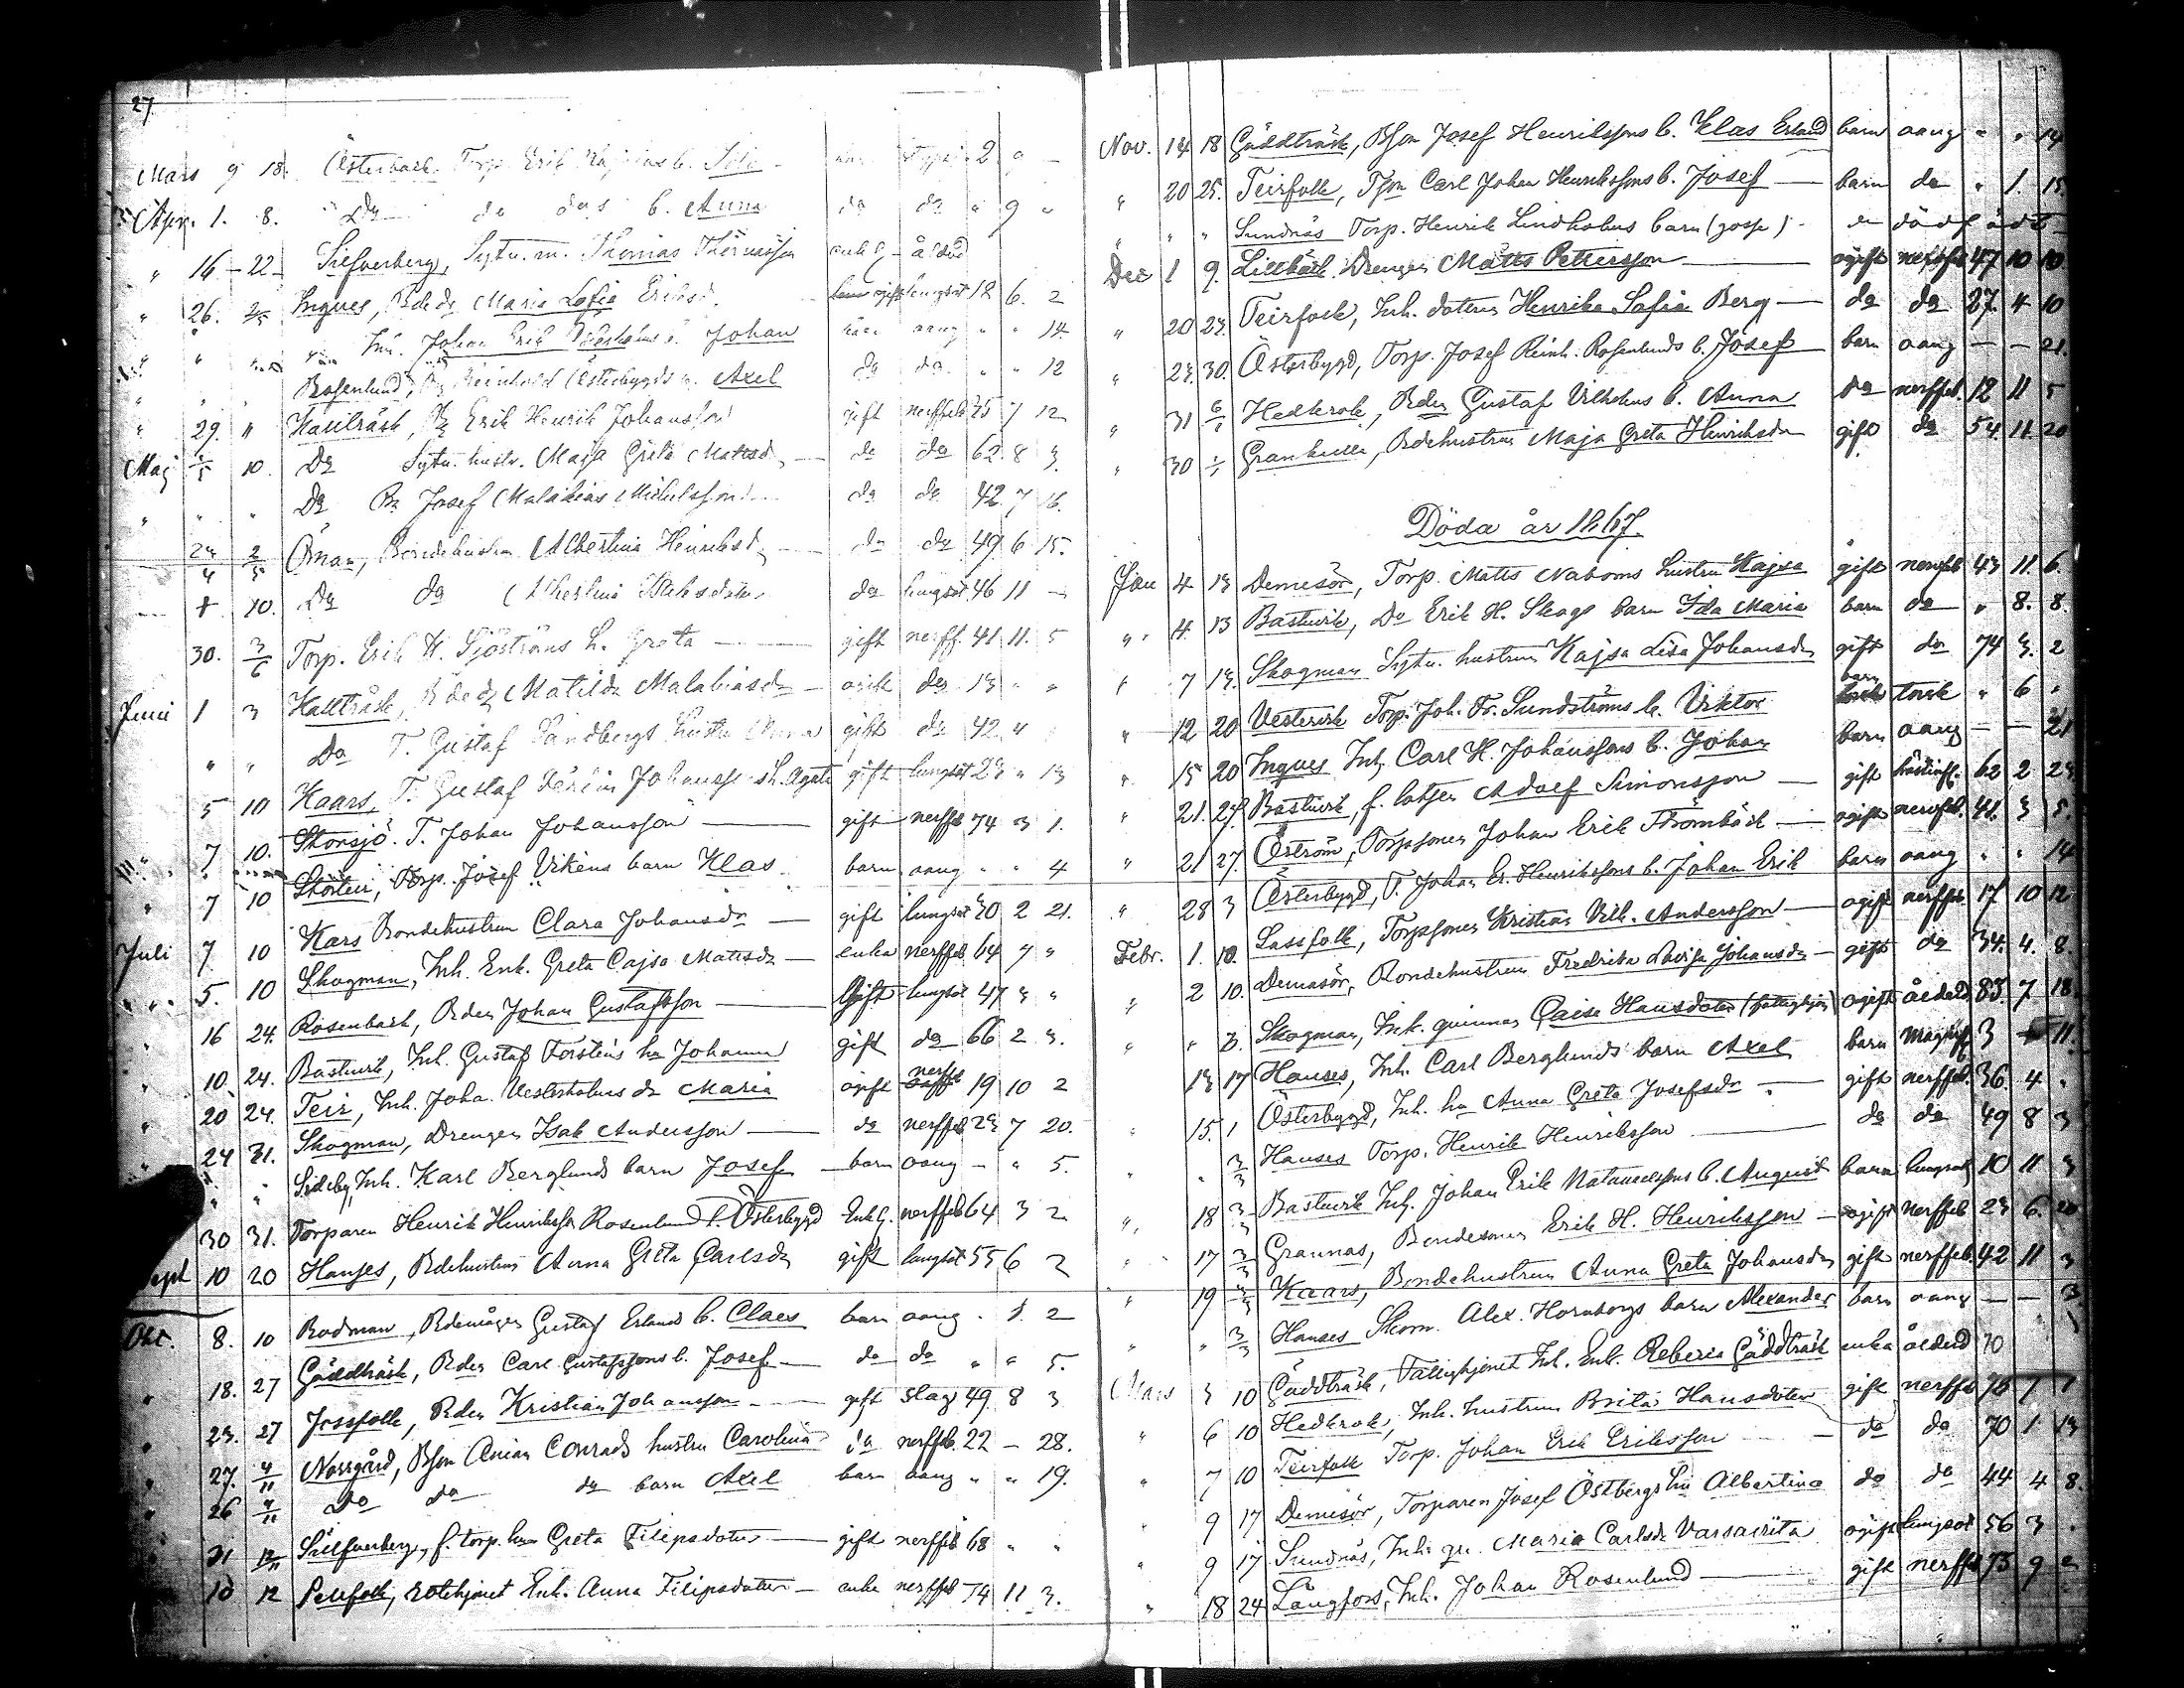 27.
Mars 9 18. Österback Torp. Erik b. Ida 2 9 -
Apr. 1. 8. Do do do s b. Anna do do " 9 "
" 16 - 22 Silfverberg, Sytn. m. Thomas Thomasson enkl. ålderd
" 26. Ingves, Bdedr Maria Sofia Eriksd. ogift lungsot 18 6. 2
Inh. Johan Erik b. Johan barn aang " " 14.
Rosenlund, Reinhold Österbygds b. Axel do do " " 12
" 29. " Kallträsk, Erik Henrik Johansson gift nerffeb 25 7 12
Maj 10. Do Sytn. hustr. Maja Greta Mattsdr do do 62 8 3.
" " " Do Josef Malakias Mickelsson do do 42 7 16.
24/4 2/5 Öman, Bondehustrun Albertina Henriksdr do do 49 6 15.
10. Do do Albertina do lungsot 46 11 -
30. 3/6 Torp. Erik H. Sjöströms h. Greta gift nerff. 41 11. 5
Juni 1 3 Kallträsk, Bdedr Matilda Malakiasdr ogift do 13 " "
" " Do T. Gustaf Sandbergs hustru Anna gift do 42 "
5 10 Kaars, T. Gustaf Johanssons h. Agata gift lungsot 23 " 13
" 7 10. Storsjö. T. Johan Johansson gift nerffeb 74 3 1.
" 7 10 Torp. Josef Vikens barn Klas barn aang " " 4
Juli 7 10 Kars Bondehustrun Clara Johansdr gift lungsot 30 2 21.
5. 10 Skogman, Inh. Enk. Greta Cajsa Mattsdr enka nerffeb 64 7 "
16 24. Rosenback, Bden Johan Gustafsson Gift lungsot 47 3 "
10. 24. Bastuvik, Inh. Gustaf Forsténs hu Johanna gift do 66 2 3.
20 24. Teir, Inh. Joha. Vesterholms dr Maria ogift nerff 19 10 2
24 31. Skogman, Drengen Isak Andersson do nerffeb 23 7 20.
" " Sideby, Inh. Karl Berglunds barn Josef barn aang - " 5.
30 31. Torparen Henrik Henriksson Rosenlund f. Österbygd Enkl. nerffeb 64 3 2
Sept 10 20 Hanses, Bdehustrun Anna Greta Carlsdr gift lungsot 55 6 2
Okt. 8. 10 Rodman, Bdemågen Gustaf Erlands b. Claes barn aang . 1. 2
" 18. 27 Gäddträsk, Bden Carl Gustafssons b. Josef do do " " 5.
" 23. 27 Jossfolk, Bden Kristian Johansson gift slag 49 8 3
" 27. 4/11 Norrgård, Bson Anian Conrads hustru Carolina do nerffeb. 22 - 28.
" 26 4/11 Do do do barn Axel barn aang " " 19.
31 Silfverberg, f. torp. hu Greta Filipsdotter gift nerffeb 68 " "
10 12 Pellfolk, Enk. Anna Filipsdotter enka nerffeb 74 11 3.
Nov. 14 18 Gäddträsk, Bson Josef Henrikssons b. Klas Erland barn aang " " 14
" 20 25. Teirfolk, Tson Carl Johan Henrikssons b. Josef barn do " 1. 15
" " " Sundnäs Torp. Henrik Lindholms barn (gosse) do dödfödt
Dec 1 9. Lillbäck Drengen Matts Pettersson ogift nerffeb 47 10 10
" 20 23. Teirfolk, Inh. dottern Henrika Sofia Berg do do 27. 4 10
" 23. 30. Österbygd, Torp. Josef Reinh. Rosenlunds b. Josef barn aang - - 21.
" 31 6/1 Hedkrok, Bden Gustaf Vilhelms b. Anna do nerffeb. 12 11 5
" 30 Grankulla, Bdehustrun Maja Greta Henriksdr gift do 54 11 20
Döda år 1867.
Jan 4 13 Demesör, Torp. Matts Naboms hustru Kajsa gift nerffeb 43 11. 6.
" 4. 13 Bastuvik, Do Erik H. Skogs barn Ida Maria barn do " 8. 8.
" 7 13. Skogman Sytn. hustrun Kajsa Lisa Johansdr gift do 74 3. 2
" 12 20 Vestervik Torp. Joh. Fr. Sundströms b. Viktor barn torsk " 6 "
" 15 20 Ingves Inh. Carl H. Johanssons b. Johan barn aang - - 21
" 21. 27. Bastuvik, f. lotsen Adolf Simonsson gift 62 2 23
" 21 27. Öström, Torpsonen Johan Erik Strömbäck ogift nervfeb. 41. 3 5.
" 28 3 Österbygd, T. Johan Er. Henrikssons b. Johan Erik barn aang " " 14
Febr. 1. 10. Lassfolk, Torpsonen Kristian Vilh. Andersson ogift nerffeb 17 10 12
" 2 10. Demesör, Bondehustrun Fredrika Lovisa Johansdr gift do 34. 4. 8.
" " Skogman, Ink. quinnan Caisa Hansdotter (fattighjon) ogift ålderd 83. 7 18.
13 17 Hanses, Inh. Carl Berglunds barn Axel barn 3 11.
15. 1 Österbygd, Inh. hu Anna Greta Josefsdr gift nerffeb. 36. 4 "
" " 3/3 Hanses Torp. Henrik Henriksson do do 49 8 3
" 18 3/3 Bastuvik Inh. Johan Erik Natanaelssons b. August barn lungsot 10 11 3
" 17 3/3 Grannas, Bondesonen Erik H. Henriksson ogift nerffeb 23 6. 20
" 19 3/3 Kaars, Bondehustrun Anna Greta Johansdr gift nerffeb. 42 11 3
" " 3/3 Hanses Skom. Alex. Hornborgs barn Alexander barn aang - - 3
Mars 3 10 Gäddträsk, Fattighjonet Inh. Enk. Rebecka Gäddträsk enka ålderd 70
" 6 10 Hedkrok, Inh. hustrun Brita Hansdotter gift nerffeb 76 7 1
" 7 10 Teirfolk Torp. Johan Erik Eriksson do do 70 1 13
" 9 17 Demesör, Torparen Josef Östbergs hu Albertina do do 44 4 8.
" 9 17 Sundnäs, Inh. qu. Maria Carlsdr ogift lungsot 56 3 "
" 18 24 Långfors, Inh. Johan Rosenlund gift nerffeb 73 9